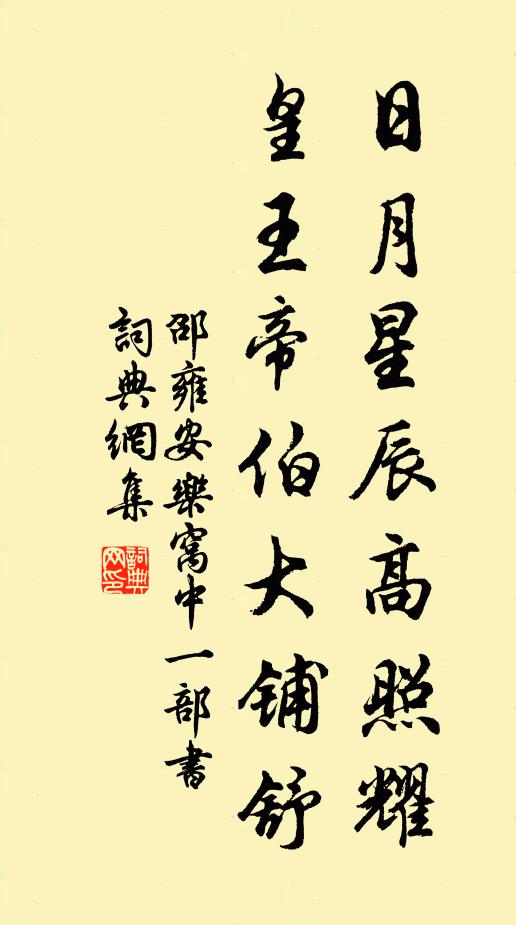 日月星辰高照耀
皇王帝伯大铺舒
邵雍安樂窩中一部書
詞典網集
詞典网印